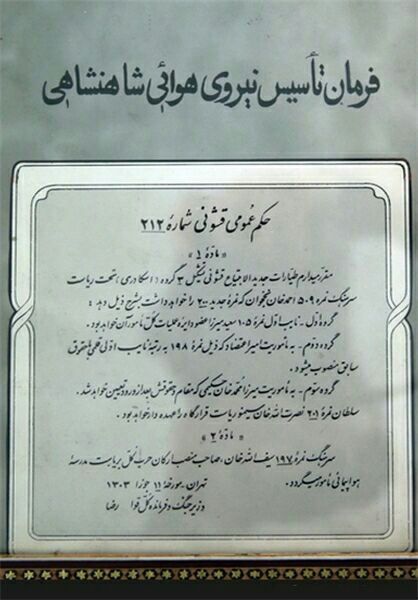 فرمان تأسیس نیروی هوائی شاهنشاهی
حکم عمومی قشونی شمارهٔ ۲۱۲
« مادهٔ ۱ »
مقرر میدارم طیارات جدید الاجتیاع قشونی بشکل ۳ گروه (اسکادری) تحت ریاست
سرهنگ نمره ۵۰۹ احمد خان نخجوان که نمرهٔ جدید ۲۰۰ را خواهد داشت بشرح ذیل دهد :
گروه اول - نایب اول نمرهٔ ۱۰۵ سعید میرزا عضو دایرهٔ عملیات کل مأمور آن خواهد بود .
گروه دوم - به مأموریت میرزا اعتضاد که ذیل نمرهٔ ۱۹۸ به رتبهٔ نایب اولی قلمی با حقوق
سابق منصوب میشود .
گروه سوم - به مأموریت میرزا محمد خان حکیمی که مقام و حقوقش بعد از ورود تعیین خواهد شد .
سلطان نمرهٔ ۲۰۱ نصرت الله خان ریاست قرارگاه را عهده دار خواهد بود .
« مادهٔ ۲ »
سرهنگ نمرهٔ ۱۹۷ سیف الله خان ، صاحب منصب ارکان حرب کل بریاست مدرسه
هواپیمائی مأمور میگردد .
تهران ، مورخهٔ ۱۱ جوزا ۱۳۰۳
وزیر جنگ و فرمانده کل قوا رضا